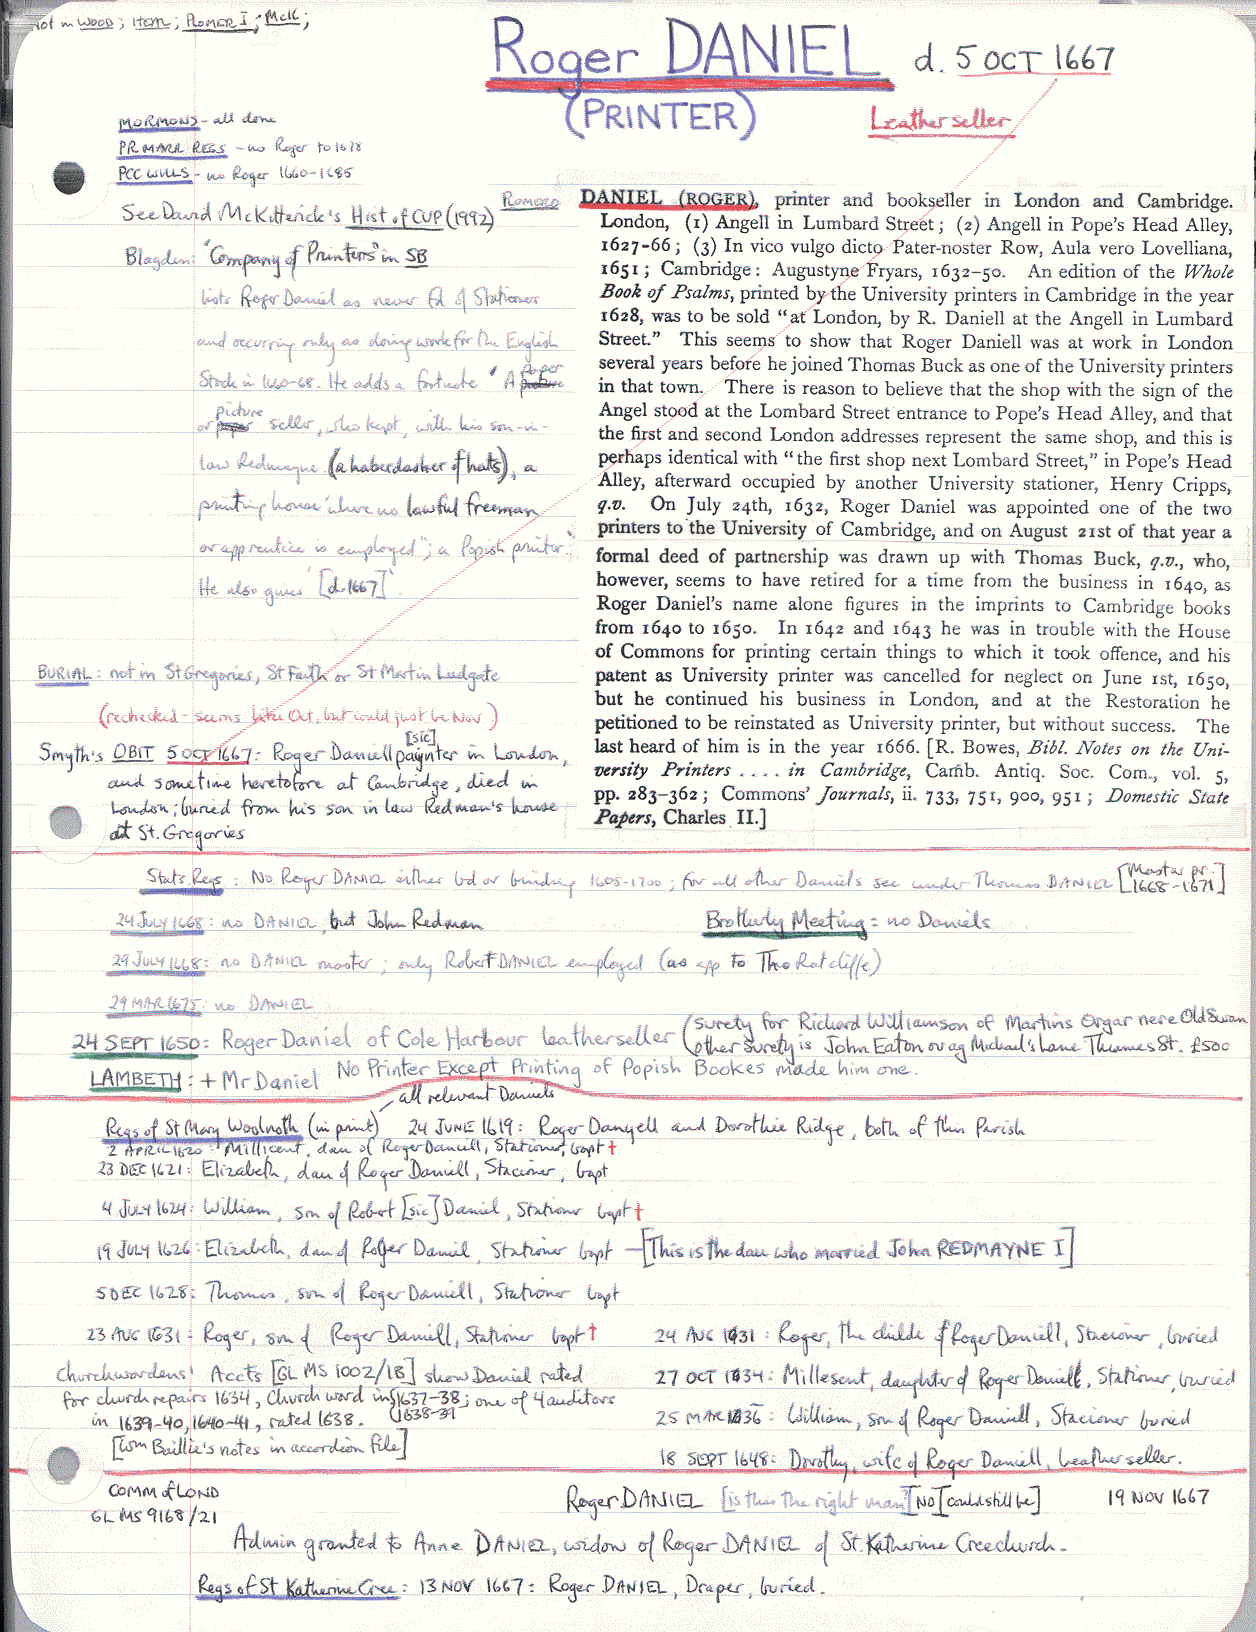 Not in WOOD; HEAL; PLOMER I; McK;
Roger DANIEL d. 5 OCT 1667
(PRINTER) Leatherseller
MORMONS - all done
PR MARR REGS - no Roger to 1678
PCC WILLS - no Roger 1660-1685
See David McKitterick's Hist of CUP (1992)
Blagden: "Company of Printers" in SB
lists Roger Daniel as never fd of Stationers
and occurring only as doing work for the English
Stock in 1660-68. He adds a footnote "A paper
or picture seller, who kept, with his son-in-
law Redmayne (a haberdasher of hats), a
printing house 'where no lawful freeman
or apprentice is employed'; a Popish printer."
He also gives '[d. 1667]'
PLOMER
DANIEL (ROGER), printer and bookseller in London and Cambridge.
London, (1) Angell in Lumbard Street; (2) Angell in Pope's Head Alley,
1627-66; (3) In vico vulgo dicto Pater-noster Row, Aula vero Lovelliana,
1651; Cambridge: Augustyne Fryars, 1632-50. An edition of the Whole
Book of Psalms, printed by the University printers in Cambridge in the year
1628, was to be sold "at London, by R. Daniell at the Angell in Lumbard
Street." This seems to show that Roger Daniell was at work in London
several years before he joined Thomas Buck as one of the University printers
in that town. There is reason to believe that the shop with the sign of the
Angel stood at the Lombard Street entrance to Pope's Head Alley, and that
the first and second London addresses represent the same shop, and this is
perhaps identical with "the first shop next Lombard Street," in Pope's Head
Alley, afterward occupied by another University stationer, Henry Cripps,
q.v. On July 24th, 1632, Roger Daniel was appointed one of the two
printers to the University of Cambridge, and on August 21st of that year a
formal deed of partnership was drawn up with Thomas Buck, q.v., who,
however, seems to have retired for a time from the business in 1640, as
Roger Daniel's name alone figures in the imprints to Cambridge books
from 1640 to 1650. In 1642 and 1643 he was in trouble with the House
of Commons for printing certain things to which it took offence, and his
patent as University printer was cancelled for neglect on June 1st, 1650,
but he continued his business in London, and at the Restoration he
petitioned to be reinstated as University printer, but without success. The
last heard of him is in the year 1666. [R. Bowes, Bibl. Notes on the Uni-
versity Printers .... in Cambridge, Camb. Antiq. Soc. Com., vol. 5,
pp. 283-362; Commons' Journals, ii. 733, 751, 900, 951; Domestic State
Papers, Charles II.]
BURIAL: not in St Gregories, St Faith or St Martin Ludgate
(rechecked - seems like Oct, but could just be Nov)
Smyth's OBIT 5 OCT 1667: Roger Daniell paynter [sic] in London,
and sometime heretofore at Cambridge, died in
London; buried from his son in law Redman's house
at St. Gregories
Stats Regs: No Roger DANIEL either bd or binding 1605-1700; for all other Daniels see under Thomas DANIEL [Master pr. 1668-1671]
24 JULY 1668: no DANIEL, but John Redman
Brotherly Meeting = no Daniels
29 JULY 1668: no DANIEL master; only Robert DANIEL employed (as app to Tho Ratcliffe)
29 MAR 1675: no DANIEL
24 SEPT 1650: Roger Daniel of Cole Harbour leatherseller (surety for Richard Williamson of Martins Orgar nere Old Swan
other surety is John Eaton ov ag Michael's Lane Thames St. £500
LAMBETH: + Mr Daniel No Printer Except Printing of Popish Bookes made him one.
all relevant Daniels
Regs of St Mary Woolnoth (in print) 24 JUNE 1619: Roger Danyell and Dorothie Ridge, both of this Parish
2 APRIL 1620: Millicent, dau of Roger Daniell, Stationer, bapt †
23 DEC 1621: Elizabeth, dau of Roger Daniell, Stacioner, bapt
4 JULY 1624: William, son of Robert [sic] Daniel, Stationer bapt †
19 JULY 1626: Elizabeth, dau of Roger Daniel, Stationer bapt - [This is the dau who married John REDMAYNE I]
5 DEC 1628: Thomas, son of Roger Daniell, Stationer bapt
23 AUG 1631: Roger, son of Roger Daniell, Stationer bapt †
24 AUG 1631: Roger, the childe of Roger Daniell, Stacioner, buried
Churchwardens' Accts [GL MS 1002/1B] show Daniel rated
27 OCT 1634: Millesent, daughter of Roger Daniell, Stationer, buried
for church repairs 1634, Church ward in 1637-38; one of 4 auditors
1638-39
in 1639-40, 1640-41, rated 1638.
25 MAR 1636: William, son of Roger Daniell, Stacioner buried
[Wm Baillie's notes in accordion file]
18 SEPT 1648: Dorothy, wife of Roger Daniell, Leatherseller.
COMM of LOND
GL MS 9168/21
Roger DANIEL [is this the right man?] [NO] [could still be] 19 NOV 1667
Admin granted to Anne DANIEL, widow of Roger DANIEL of St. Katherine Creechurch.
Regs of St Katherine Cree: 13 NOV 1667: Roger DANIEL, Draper, buried.